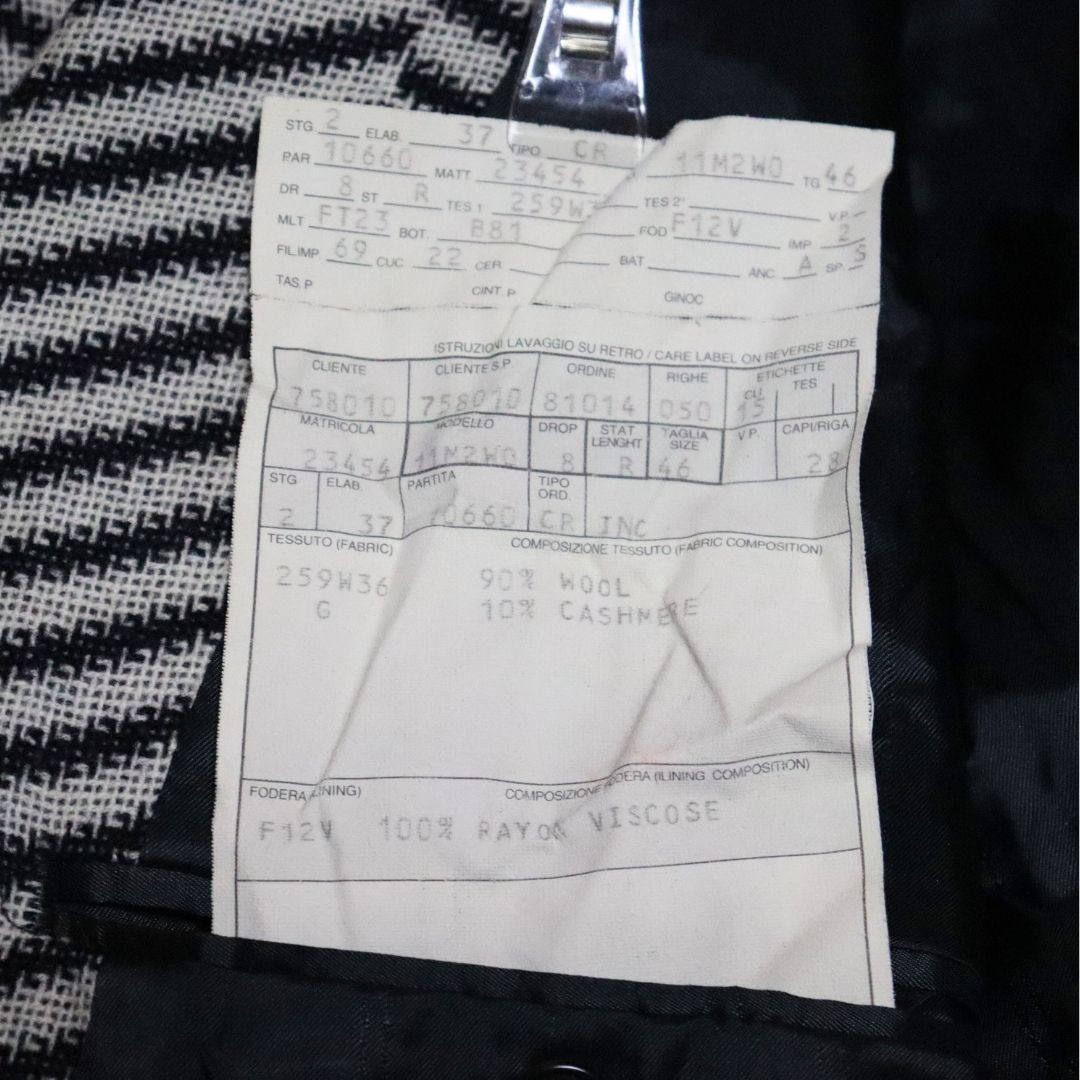 STG 2 ELAB. 37 TIPO CR 11M2W0 TG 46
PAR 10660 MATT 23454
DR 8 ST R TES 1 259W3 TES 2° V.P.
MLT FT23 BOT. B81 FOD F12V IMP 2
FIL.IMP 69 CUC 22 CER BAT ANC A SP. S
TAS.P CINT.P GINOC
ISTRUZIONI LAVAGGIO SU RETRO / CARE LABEL ON REVERSE SIDE
CLIENTE CLIENTE S.P ORDINE RIGHE ETICHETTE
CLI. TES
758010 758010 81014 050 15
MATRICOLA MODELLO DROP STAT LENGHT TAGLIA SIZE V.P. CAPI/RIGA
23454 11M2W0 8 R 46 28
STG ELAB. PARTITA TIPO ORD.
2 37 10660 CR INC
TESSUTO (FABRIC) COMPOSIZIONE TESSUTO (FABRIC COMPOSITION)
259W36 90% WOOL
G 10% CASHMERE
FODERA (LINING) COMPOSIZIONE FODERA (ILINING COMPOSITION)
F12V 100% RAYON VISCOSE